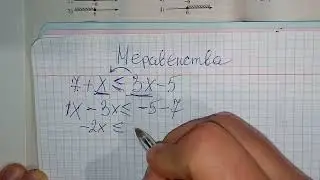 Неравенства
7 + x ≤ 3x - 5
1x - 3x ≤ -5 - 7
-2x ≤